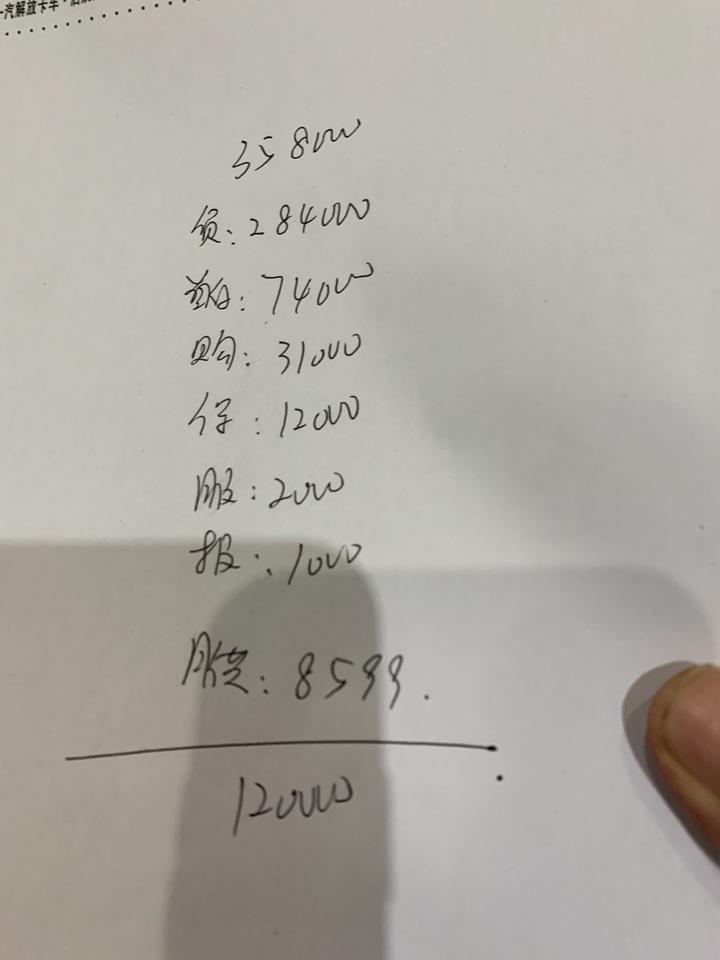 一汽解放卡车
358000
贷:284000
首付:74000
购:31000
保:12000
服:2000
报:1000
8599.
120000